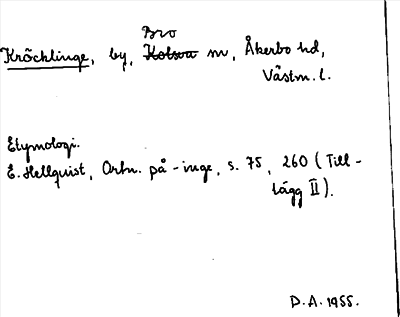 Bro
Kröcklinge, by, Kolsva sn, Åkerbo hd,
Västm. l.
Etymologi.
E. Hellquist, Ortn. på -inge, s. 75, 260 (Till-
lägg II).
D.A. 1955.